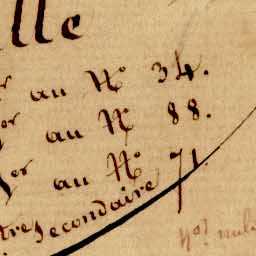 lle
er au N° 34.
er au N° 88.
er au N° 71.
tre secondaire